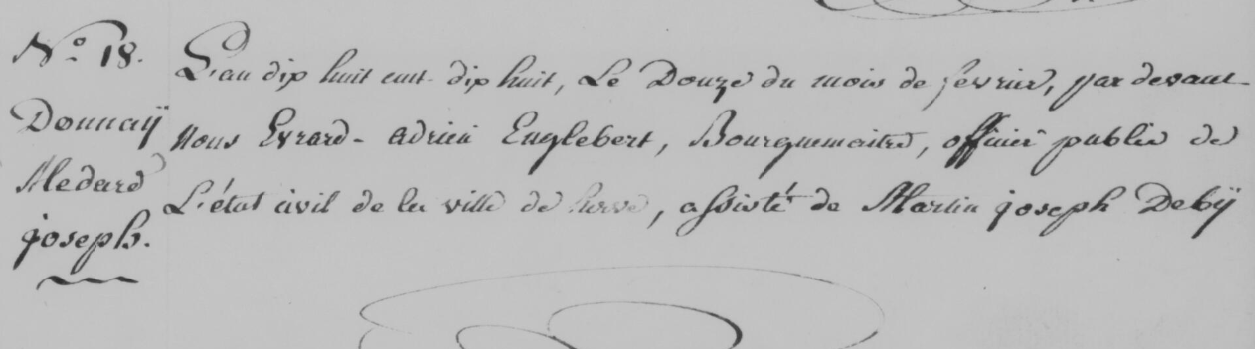 No. 18.
Donnaÿ
Medard
joseph.
L'an dix huit cent dix huit, Le Douze du mois de février, par devant
Nous Evrard-adrien Englebert, Bourguemaitre, officier public de
L'état civil de la ville de herve, assisté de Martin joseph Debÿ